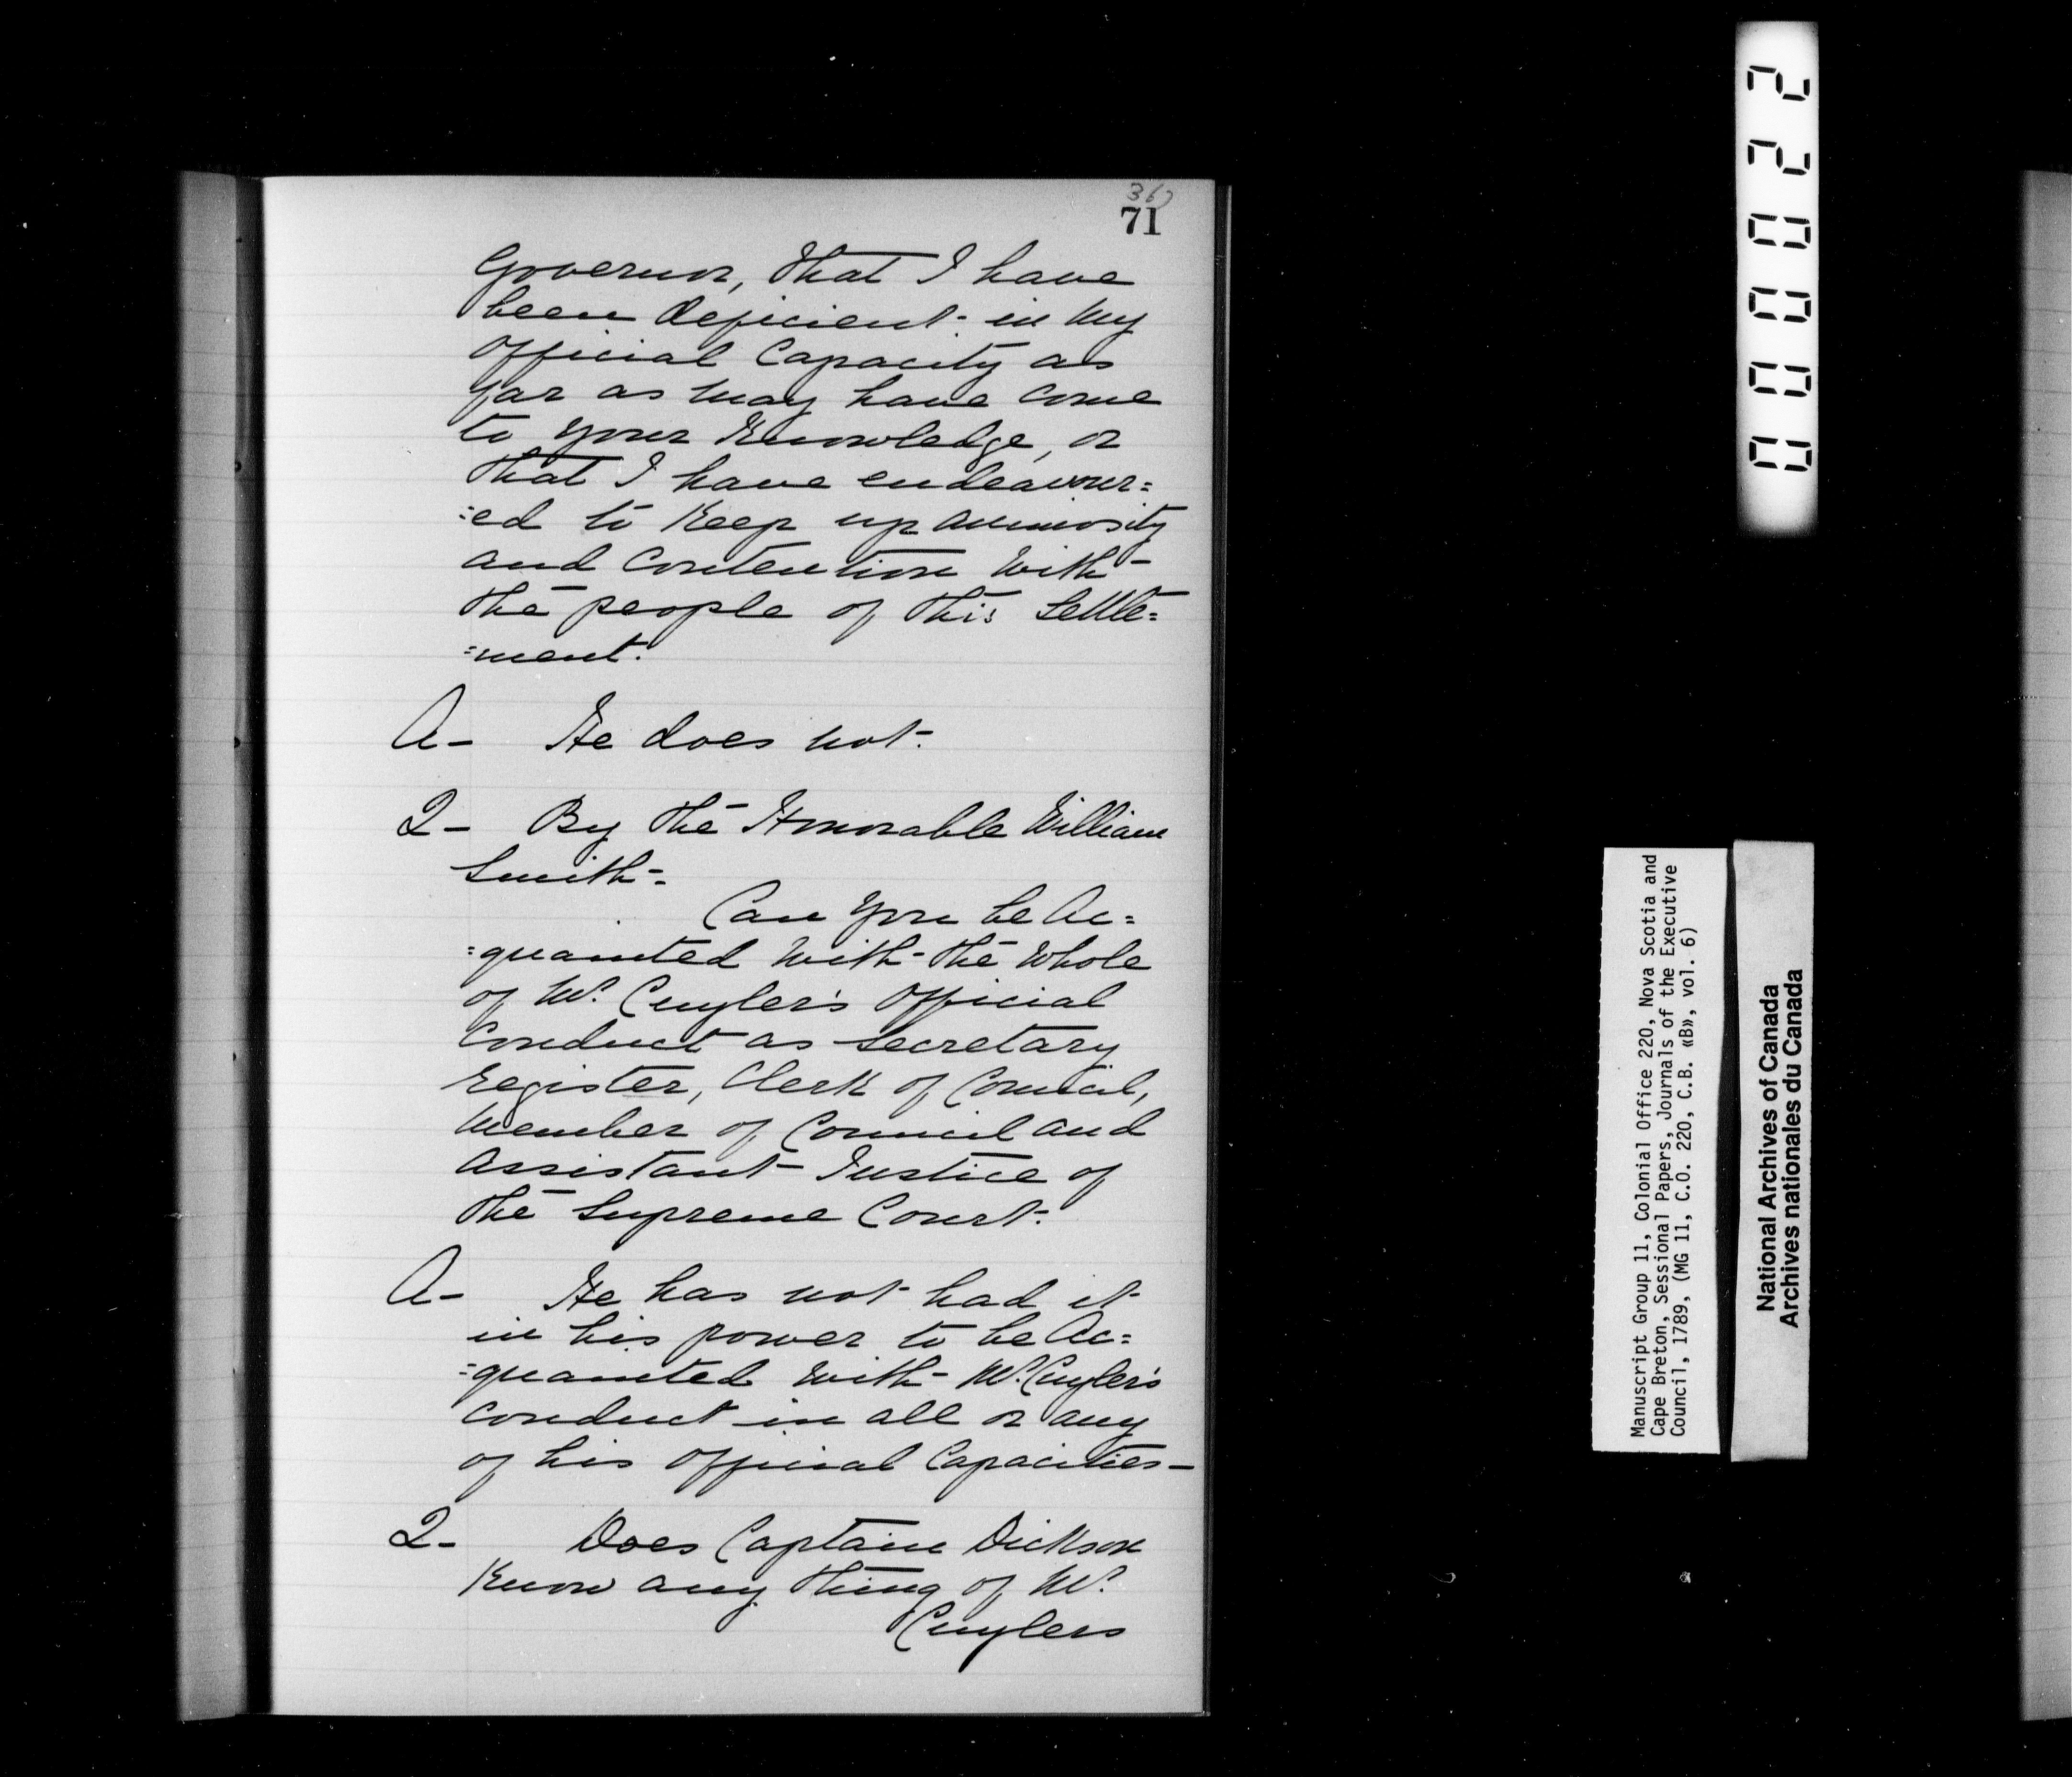 36)
71
Governor, that I have
been deficient in my
Official Capacity as
far as may have come
to your Knowledge, or
that I have endeavour=
=ed to Keep up animosity
and Contention with
the people of this Settle=
=ment.
A- He does not.
Q- By the Honorable William
Smith-
Can you be Ac=
=quainted with the Whole
of Mr. Cuyler's Official
Conduct as Secretary
Register, Clerk of Council,
Member of Council and
Assistant Justice of
the Supreme Court.
A- He has not had it
in his power to be Ac=
=quainted with Mr. Cuyler's
Conduct in all or any
of his Official Capacities-
Q- Does Captain Dickson
Know any thing of Mr.
Cuylers
000022
Manuscript Group 11, Colonial Office 220, Nova Scotia and
Cape Breton, Sessional Papers, Journals of the Executive
Council, 1789, (MG 11, C.O. 220, C.B. «B», vol. 6)
National Archives of Canada
Archives nationales du Canada